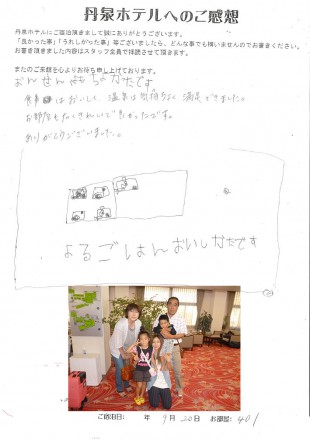 丹泉ホテルへのご感想
丹泉ホテルにご宿泊頂きまして誠にありがとうございます。
「良かった事」「うれしかった事」等ございましたら、どんな事でも構いませんのでお書きください。
お書き頂きました内容はスタッフ全員で拝読させて頂きます。
またのご来館を心よりお待ち申し上げております。
おんせんきもちかたです
食事はおいしく、温泉は気持ちよく満足できました。
お部屋も広くきれいで良かったです。
ありがとうございました。
よるごはんおいしかたです
ご宿泊日: 年 9月 20日 お部屋: 401